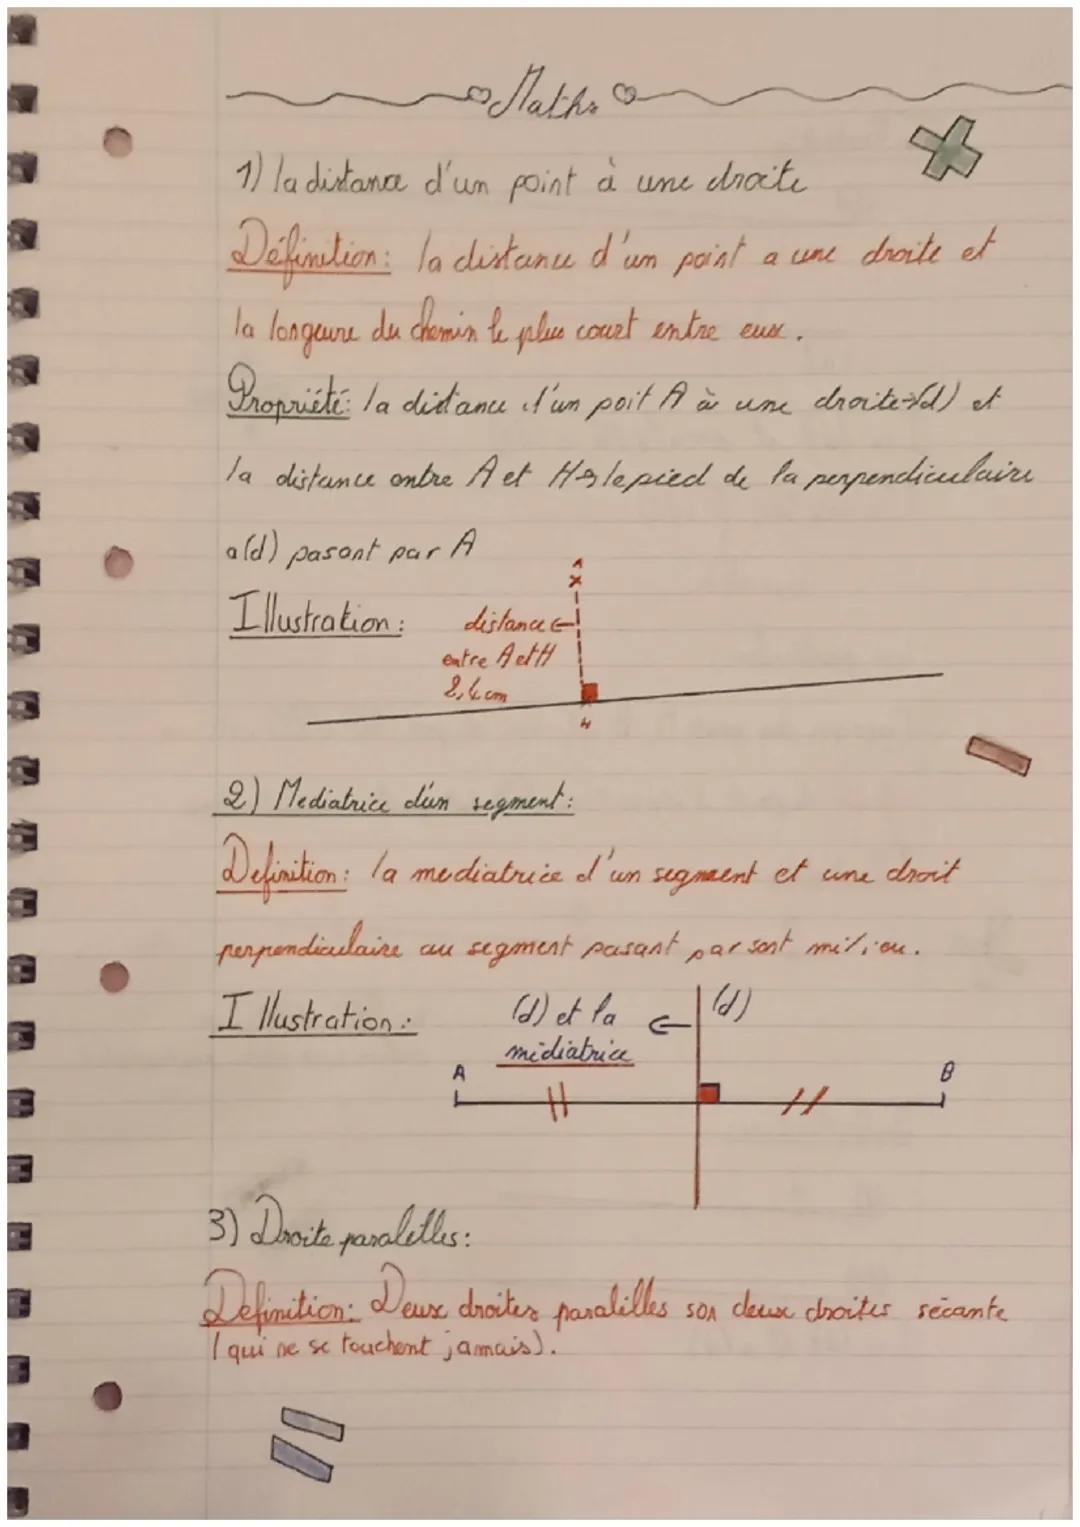 Maths
1) la distance d'un point à une droite
Définition: la distance d'un point a une droite et
la longeure du chemin le plus court entre eux.
Propriété: la distance d'un poit A à une droite→(d) et
la distance entre A et H→le pied de la perpendiculaire
a(d) pasant par A
Illustration:
A
distance
entre A et H
2,4 cm
H
2) Mediatrice d'un segment:
Definition: la mediatrice d'un segment et une droit
perpendiculaire au segment pasant par sont milieu.
Illustration:
(d) et la
médiatrice
(d)
A
B
3) Droite paralelles:
Definition: Deux droites paralilles son deux droites sécante
(qui ne se touchent jamais).